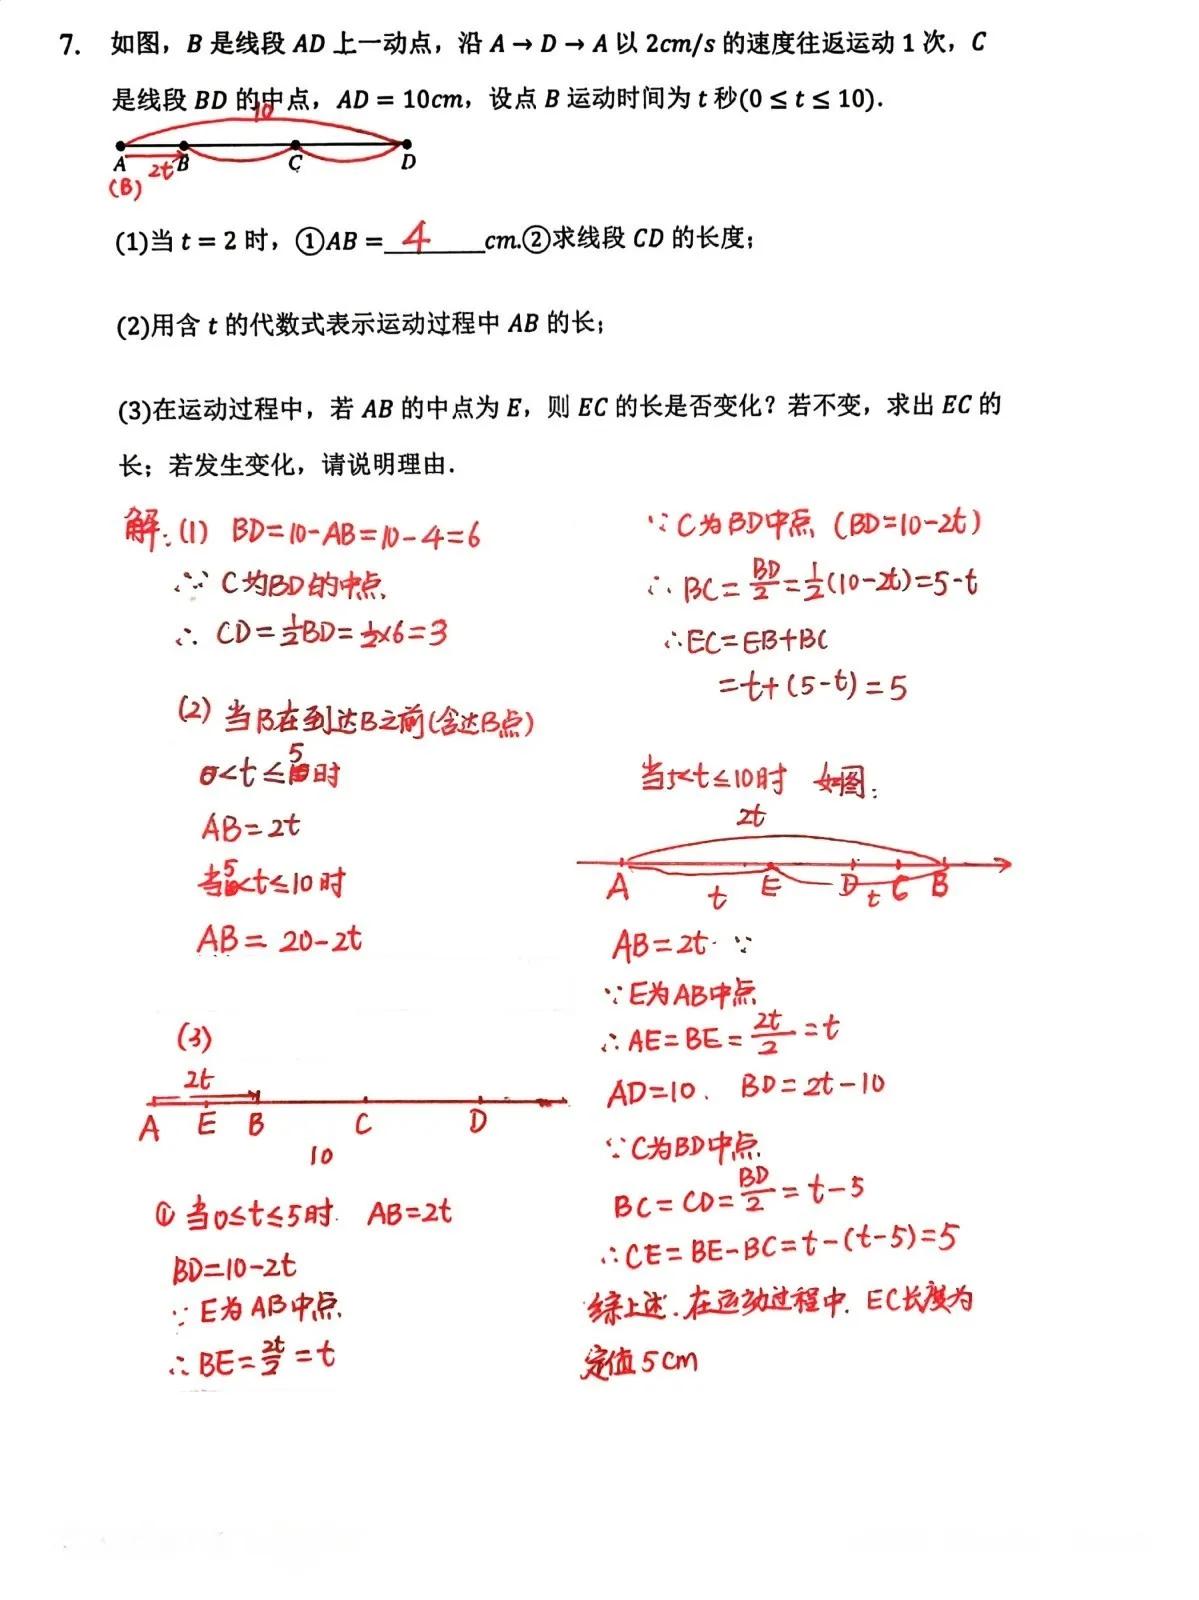 7. 如图，B 是线段 AD 上一动点，沿 A → D → A 以 2cm/s 的速度往返运动 1 次，C
是线段 BD 的中点，AD = 10cm，设点 B 运动时间为 t 秒(0 ≤ t ≤ 10).
10
A 2t B C D
(B)
(1)当 t = 2 时，①AB = 4 cm.②求线段 CD 的长度；
(2)用含 t 的代数式表示运动过程中 AB 的长；
(3)在运动过程中，若 AB 的中点为 E，则 EC 的长是否变化？若不变，求出 EC 的
长；若发生变化，请说明理由.
解：(1) BD=10-AB=10-4=6
∵ C为BD的中点
∴ CD=1/2BD=1/2×6=3
(2) 当B在到达B之前(含达B点)
0<t≤5时
AB=2t
当5<t≤10时
AB= 20-2t
(3)
2t
A E B C D
10
① 当0≤t≤5时. AB=2t
BD=10-2t
∵ E为AB中点
∴ BE=2t/2=t
∵ C为BD中点 (BD=10-2t)
∴ BC=BD/2=1/2(10-2t)=5-t
∴EC=EB+BC
=t+(5-t)=5
当5<t≤10时 如图:
2t
A t E D t C B
AB=2t ∵
∵E为AB中点
∴AE=BE=2t/2=t
AD=10. BD=2t-10
∵C为BD中点
BC=CD=BD/2=t-5
∴CE=BE-BC=t-(t-5)=5
综上述.在运动过程中. EC长度为
定值5cm